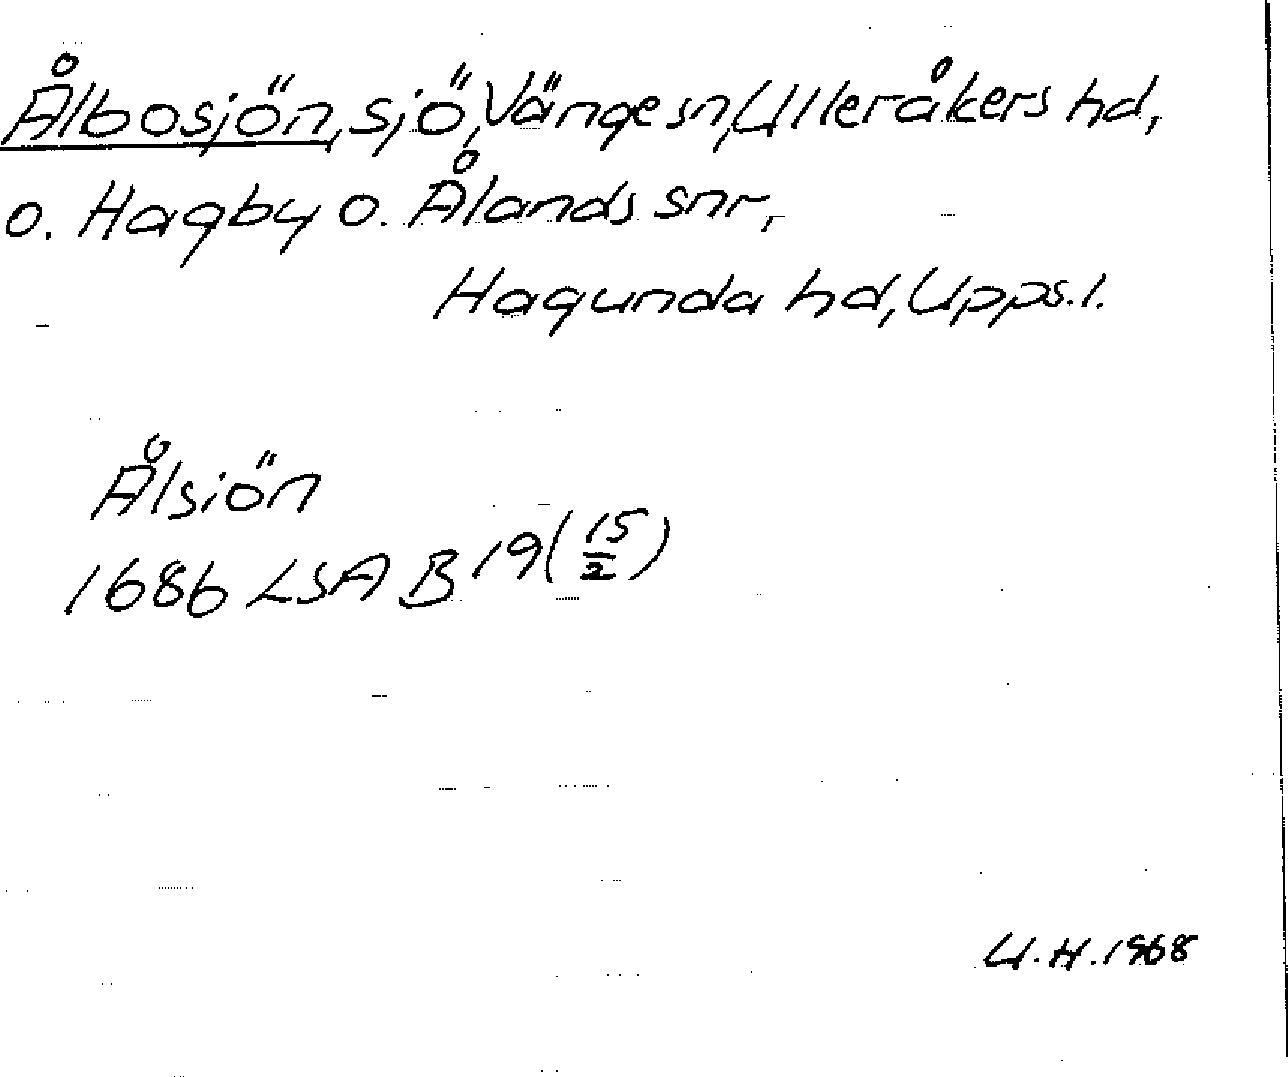 Ålbosjön, sjö, Vänge sn, Ulleråkers hd,
o. Hagby o. Ålands snr,
Hagunda hd, Upps.l.
Ålsiön
1686 LSA B 19 (15/2)
U.H. 1968